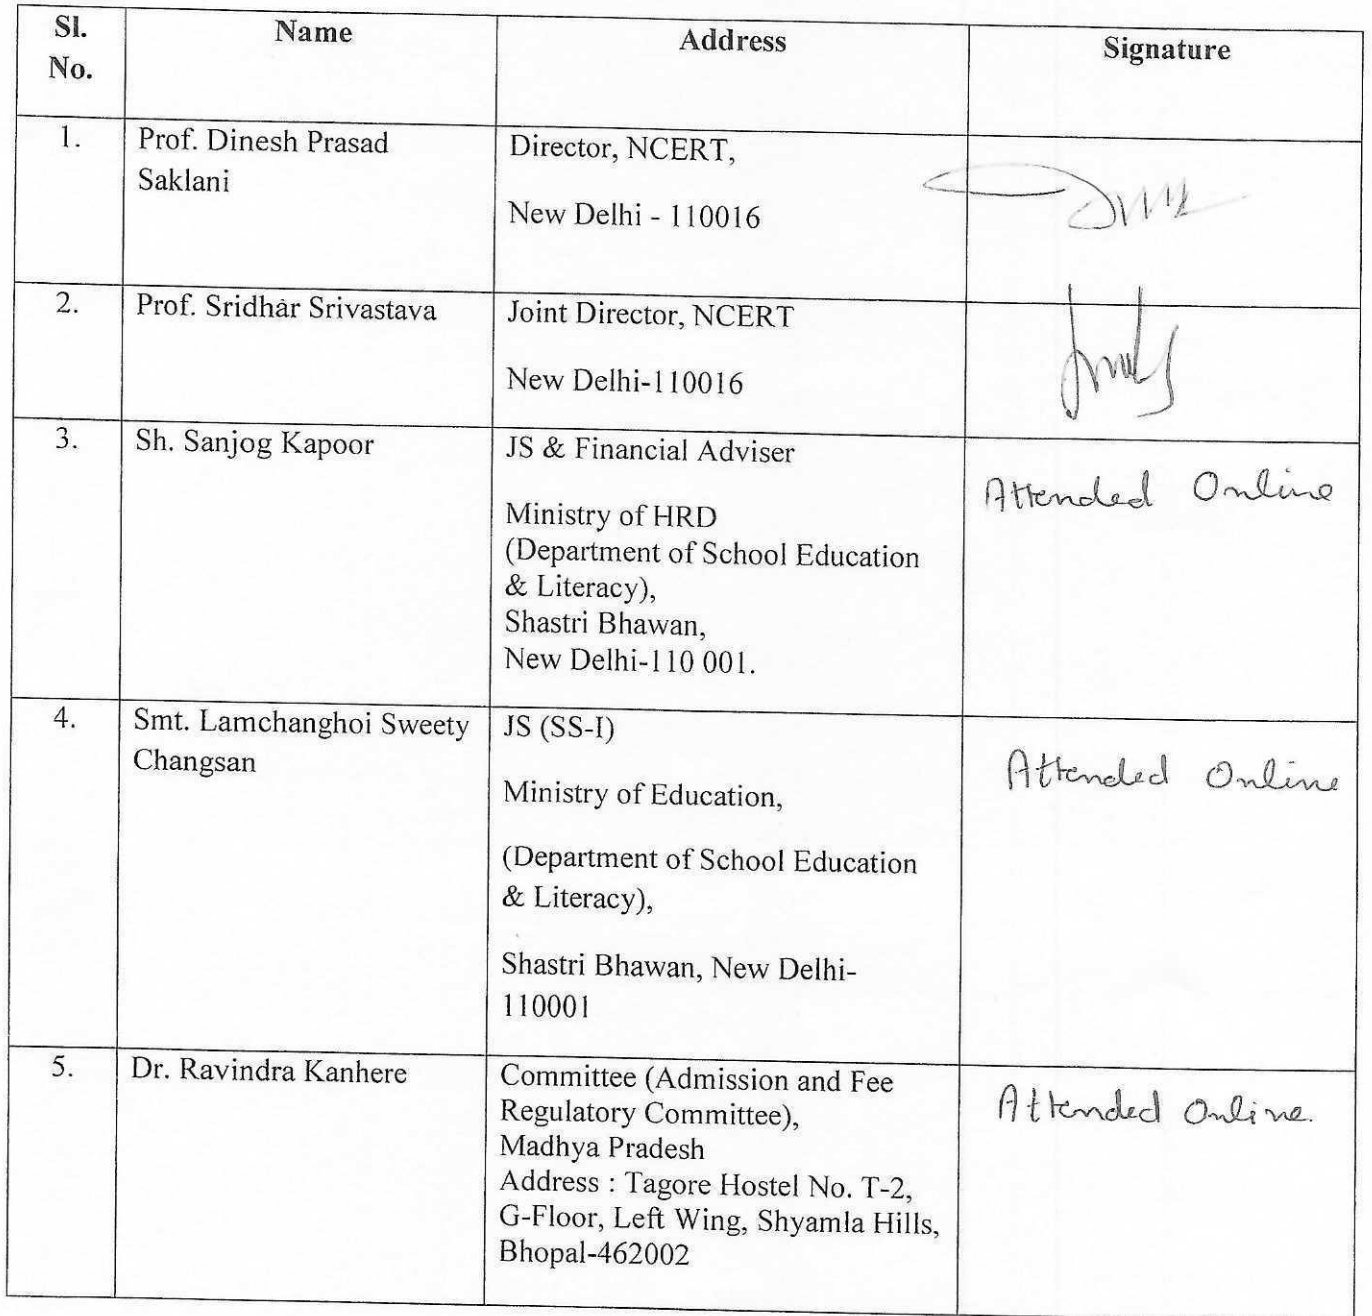 Sl. No.
Name
Address
Signature
1.
Prof. Dinesh Prasad
Saklani
Director, NCERT,
New Delhi - 110016
2.
Prof. Sridhar Srivastava
Joint Director, NCERT
New Delhi-110016
3.
Sh. Sanjog Kapoor
JS & Financial Adviser
Ministry of HRD
(Department of School Education
& Literacy),
Shastri Bhawan,
New Delhi-110 001.
Attended Online
4.
Smt. Lamchanghoi Sweety
Changsan
JS (SS-I)
Ministry of Education,
(Department of School Education
& Literacy),
Shastri Bhawan, New Delhi-
110001
Attended Online
5.
Dr. Ravindra Kanhere
Committee (Admission and Fee
Regulatory Committee),
Madhya Pradesh
Address : Tagore Hostel No. T-2,
G-Floor, Left Wing, Shyamla Hills,
Bhopal-462002
Attended Online.